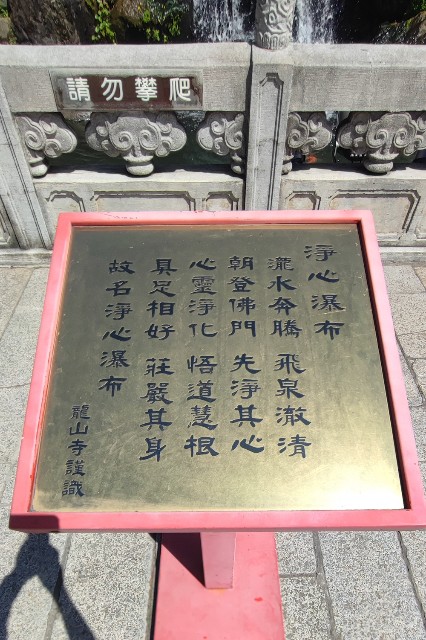 請勿攀爬
淨心瀑布
瀧水奔騰 飛泉澈清
朝登佛門 先淨其心
心靈淨化 悟道慧根
具足相好 莊嚴其身
故名淨心瀑布
龍山寺謹識